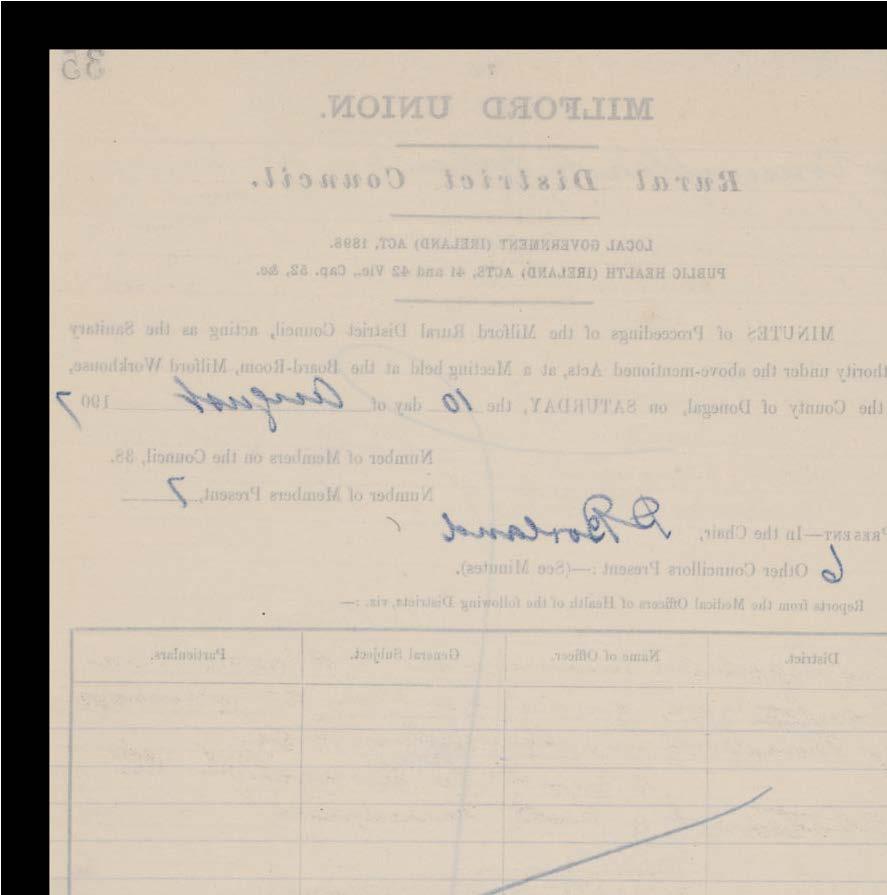 35
7
MILFORD UNION.
Rural District Council.
LOCAL GOVERNMENT (IRELAND) ACT, 1898.
PUBLIC HEALTH (IRELAND) ACTS, 41 and 42 Vic., Cap. 52, &c.
MINUTES of Proceedings of the Milford Rural District Council, acting as the Sanitary
thority under the above-mentioned Acts, at a Meeting held at the Board-Room, Milford Workhouse,
the County of Donegal, on SATURDAY, the 10 day of August 1907
Number of Members on the Council, 38.
Number of Members Present, 7
PRESENT—In the Chair, D Borland
6 Other Councillors Present :—(See Minutes).
Reports from the Medical Officers of Health of the following Districts, viz. :—
District. Name of Officer. General Subject. Particulars.